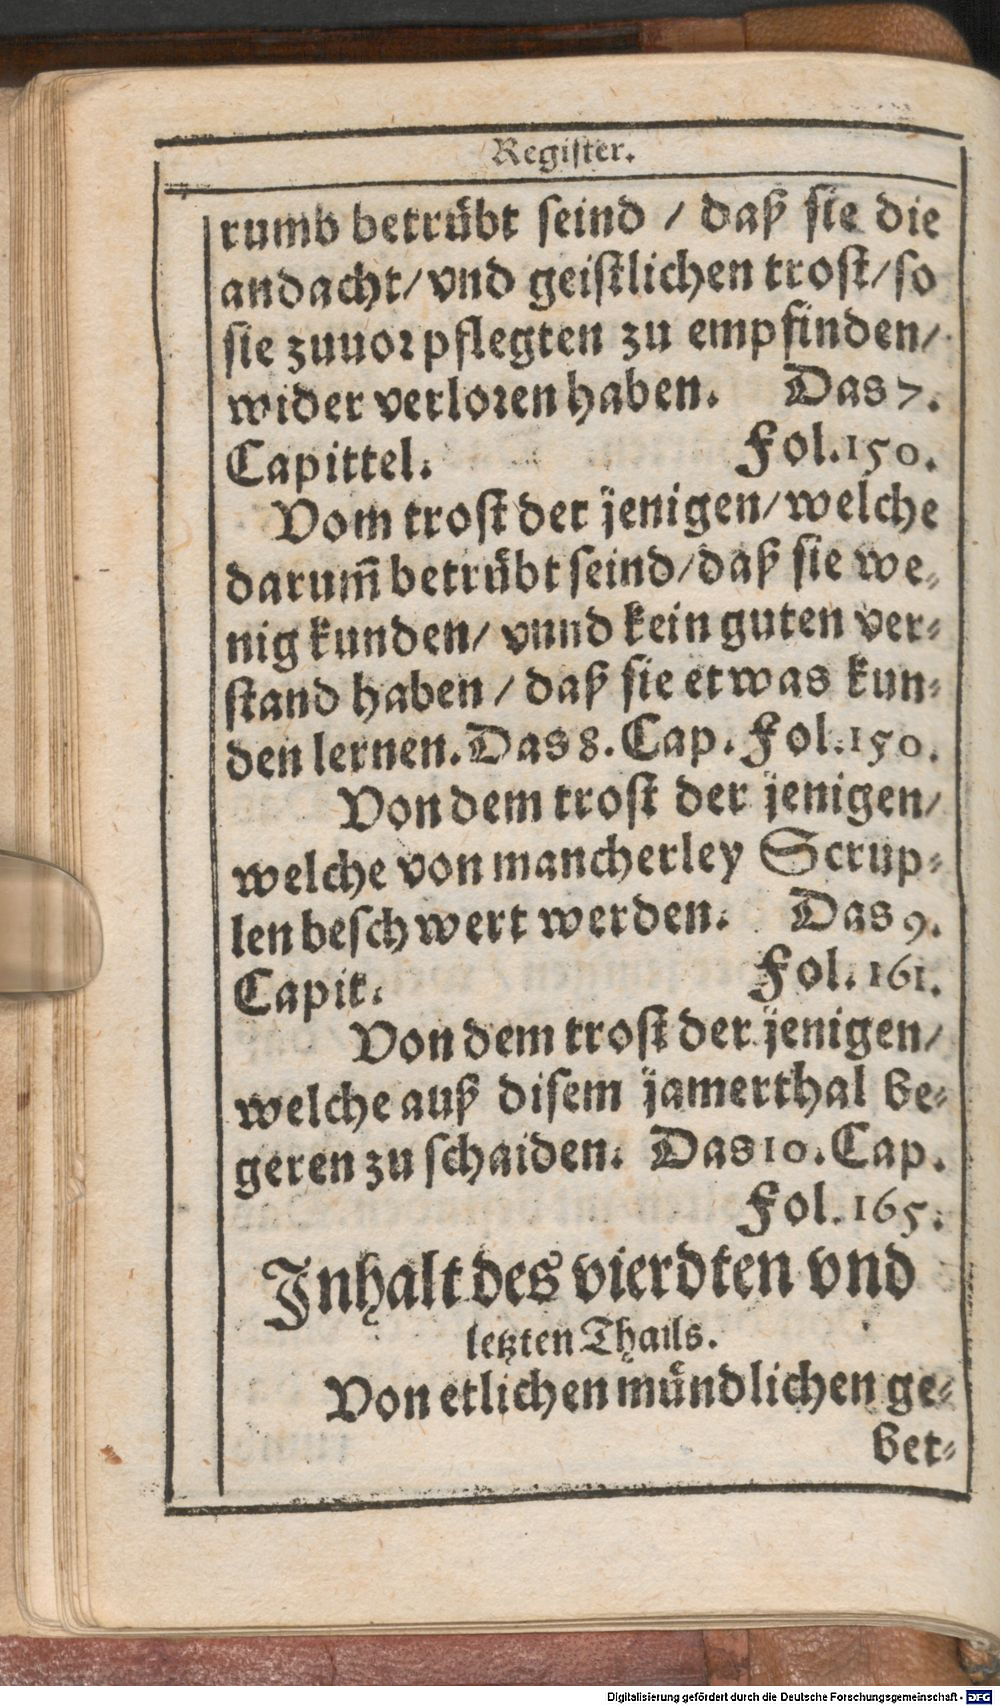 Register.
rumb betrübt seind / daß sie die
andacht/ vnd geistlichen trost/ so
sie zuuor pflegten zu empfinden/
wider verloren haben. Das 7.
Capittel. Fol. 150.
Vom trost der jenigen/ welche
darum̄ betrübt seind/ daß sie we-
nig kunden/ vnnd kein guten ver-
stand haben / daß sie etwas kun-
den lernen. Das 8. Cap. Fol. 150.
Von dem trost der jenigen/
welche von mancherley Scrup-
len beschwert werden. Das 9.
Capit. Fol. 161.
Von dem trost der jenigen/
welche auß disem jamerthal be-
geren zu schaiden. Das 10. Cap.
Fol. 165.
Inhalt des vierdten vnd
letzten Thails.
Von etlichen mündlichen ge-
bet-
Digitalisierung gefördert durch die Deutsche Forschungsgemeinschaft - DFG